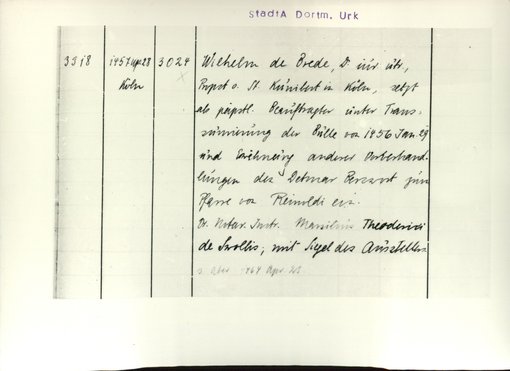 StadtA Dortm. Urk
3318 1457 Apr 28 3024 Wilhelm de Brede, D. iur utr,
Köln Propst v. St. Kunibert in Köln, setzt
als päpstl. Beauftragter unter Trans-
sumierung der Bulle von 1456 Jan. 29
und anderer Vorverhand-
lungen den Detmar Berswort zum
Pfarrer von Reinoldi ein.
Or. Notar. Instr. Theoderici
de Swollis, mit Siegel des Ausstellers
s. 1464 Apr.